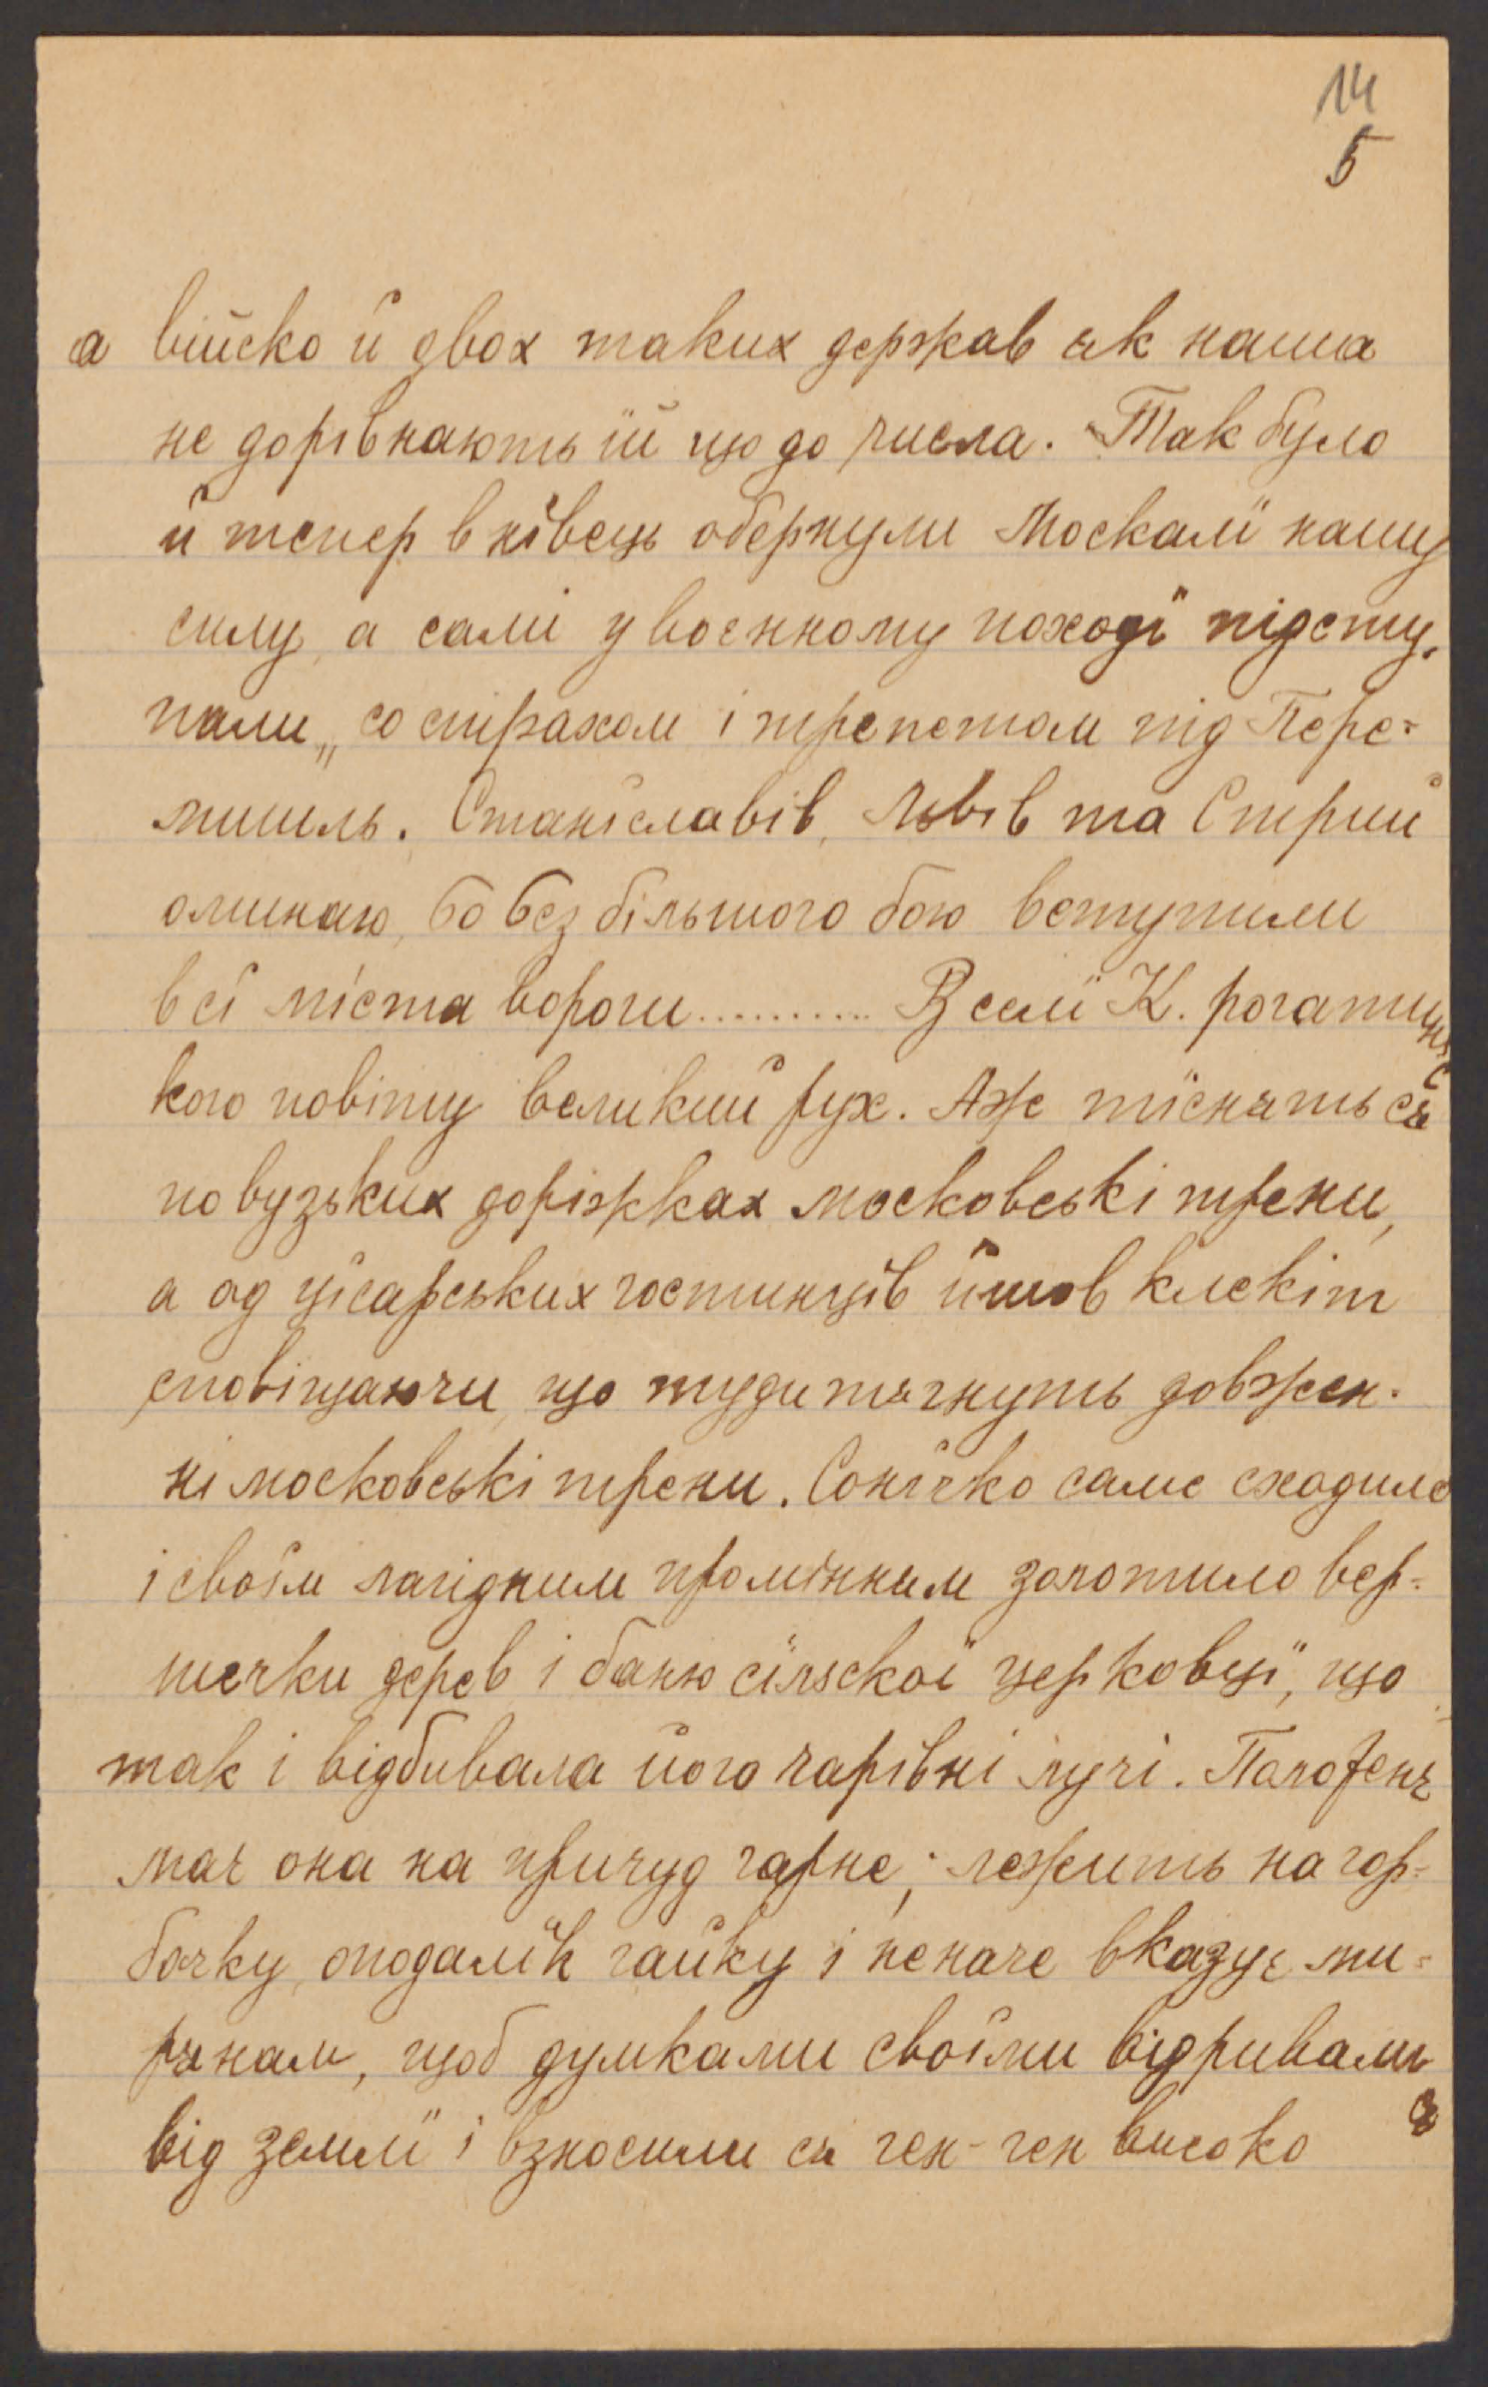 14
5
а війско й двох таких держав як наша
не дорівнають їй що до числа. Так було
й тепер в нівець обернули Москалї нашу
силу, а самі у воєнному походї підсту-
пали „со страхом і трепетом під Пере-
мишль. Станїславів, Львів та Стрий
оминаю, бо без більшого бою вступили
в сї міста вороги.......... В селї К. рогатинсь
кого повіту великий рух. Аж тїснять ся
по вузьких доріжках московські трени,
а од цїсарських гостинцїв йшов клекіт
сповіщаючи, що туди тягнуть довжен-
ні московські трени. Сонїчко саме сходило
і своїм лагідним промінням золотило вер-
шечки дерев і баню сїльскої церковцї, що
так і відбивала його чарівні лучі. Положенє
має она на причуд гарне; лежить на гор-
бочку, оподалїк гайку і неначе вказує ми-
рянам, щоб думками своїми відривали ся
від землї і взносили ся ген-ген високо